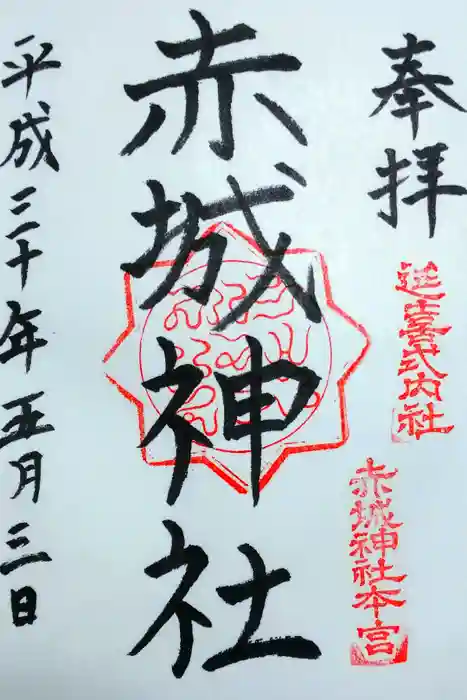 奉拝
延喜式内社
赤城神社本宮
赤城神社
平成三十年五月三日